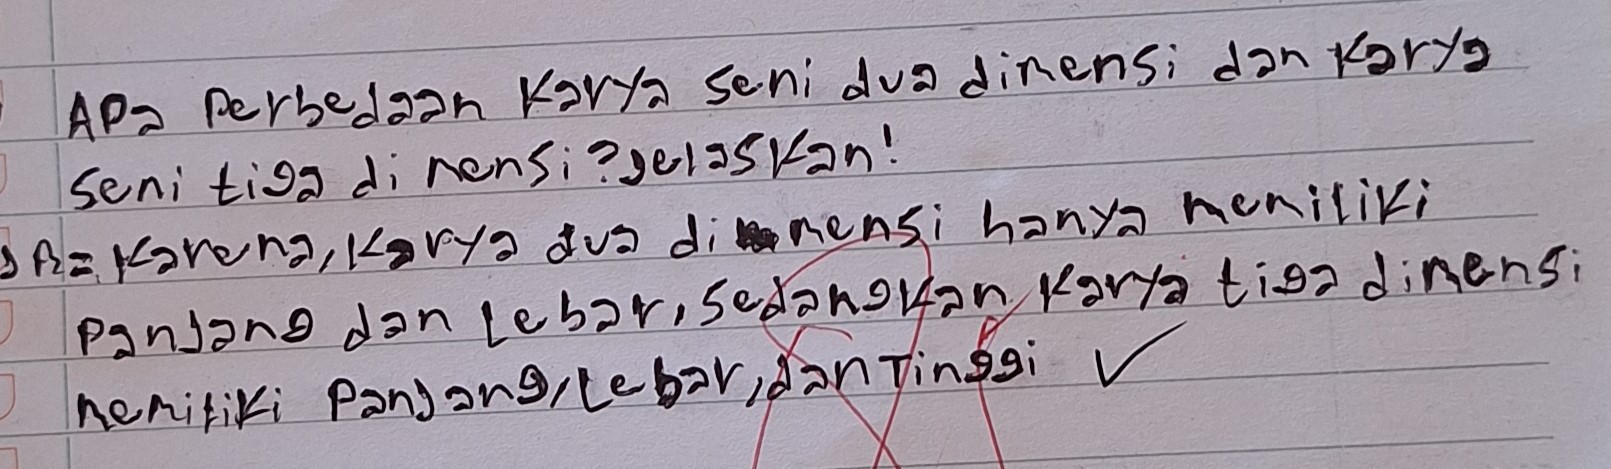 Apa Perbedaan Karya seni dua dimensi dan Karya
seni tiga dimensi? jelaskan!
= Karena, Karya dua dimensi hanya memiliki
Panjang dan Lebar, sedangkan Karya tiga dimensi
memiliki Panjang, Lebar, dan Tinggi ✓